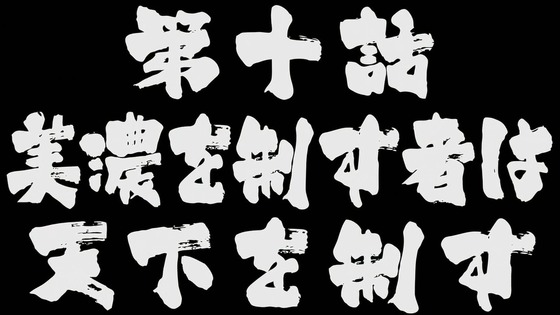 第十話
美濃を制す者は
天下を制す